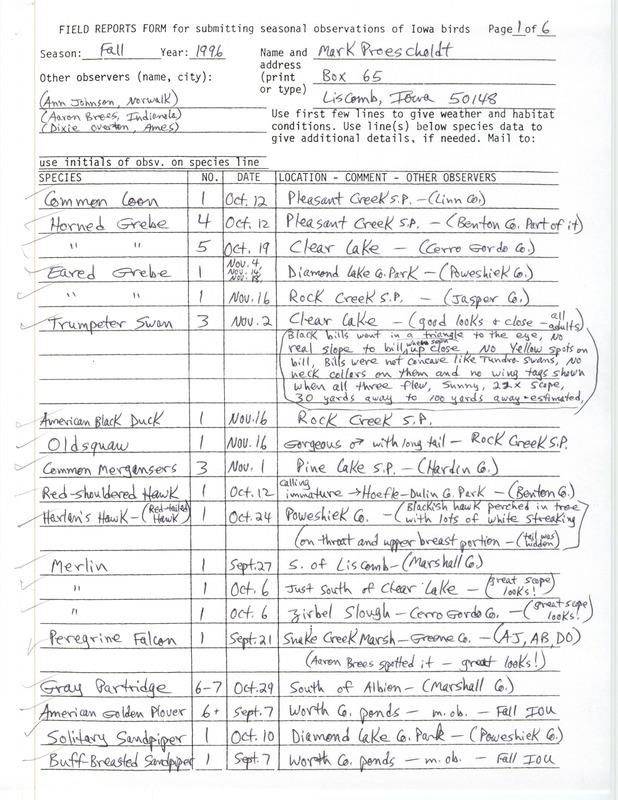 FIELD REPORTS FORM for submitting seasonal observations of Iowa birds Page 1 of 6
Season: Fall Year: 1996 Name and Mark Proescholdt
address
Other observers (name, city): (print Box 65
or type)
(Ann Johnson, Norwalk) Liscomb, Iowa 50148
(Aaron Brees, Indianola) Use first few lines to give weather and habitat
(Dixie Overton, Ames) conditions. Use line(s) below species data to
give additional details, if needed. Mail to:
use initials of obsv. on species line
SPECIES NO. DATE LOCATION - COMMENT - OTHER OBSERVERS
Common Loon 1 Oct. 12 Pleasant Creek S.P. - (Linn Co.)
Horned Grebe 4 Oct. 12 Pleasant Creek S.P. - (Benton Co. Part of it)
" " 5 Oct. 19 Clear Lake - (Cerro Gordo Co.)
Eared Grebe 1 Nov. 4, Nov. 14, Nov. 18, Diamond Lake Co. Park - (Poweshiek Co.)
" " 1 Nov. 16 Rock Creek S.P. - (Jasper Co.)
Trumpeter Swan 3 Nov. 2 Clear Lake - (good looks + close - all adults)
Black bills went in a triangle to the eye, No
real slope to bill, where seen up close, No Yellow spots on
bill, Bills were not concave like Tundra Swans, No
neck collars on them and no wing tags shown
when all three flew, Sunny, 22x scope,
30 yards away to 100 yards away - estimated,
American Black Duck 1 Nov. 16 Rock Creek S.P.
Oldsquaw 1 Nov. 16 Gorgeous ♂ with long tail - Rock Creek S.P.
Common Mergansers 3 Nov. 1 Pine Lake S.P. - (Hardin Co.)
Red-shouldered Hawk 1 Oct. 12 calling immature → Hoefle-Dulin Co. Park - (Benton Co.)
Harlan's Hawk - (Red-tailed Hawk) 1 Oct. 24 Poweshiek Co. - (Blackish hawk perched in tree
with lots of white streaking
on throat and upper breast portion - (tail was hidden)
Merlin 1 Sept. 27 S. of Liscomb - (Marshall Co.)
" 1 Oct. 6 Just South of Clear Lake - (great scope looks!)
" 1 Oct. 6 Zirbel Slough - Cerro Gordo Co. - (great scope looks!)
Peregrine Falcon 1 Sept. 21 Snake Creek Marsh - Greene Co. - (AJ, AB, DO)
(Aaron Brees spotted it - great looks!)
Gray Partridge 6-7 Oct. 29 South of Albion - (Marshall Co.)
American Golden Plover 6+ Sept. 7 Worth Co. ponds - m. ob. - Fall IOU
Solitary Sandpiper 1 Oct. 10 Diamond Lake Co. Park - (Poweshiek Co.)
Buff-Breasted Sandpiper 1 Sept. 7 Worth Co. ponds - m. ob. - Fall IOU